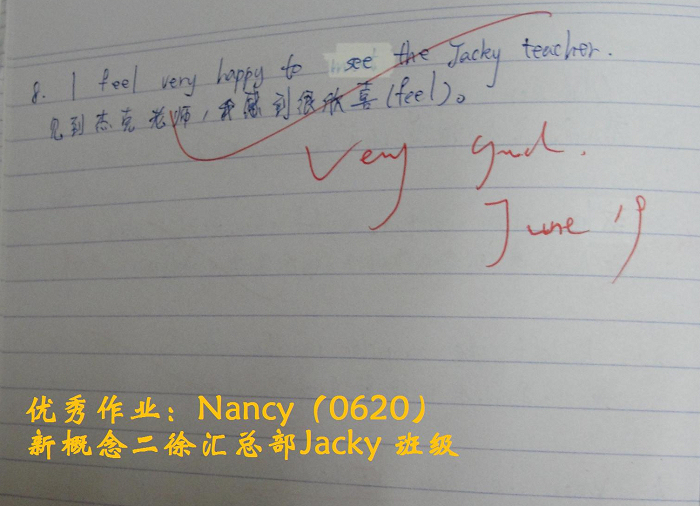 8. I feel very happy to see the Jacky teacher.
见到杰克老师，我感到很欣喜(feel)。
Very good.
June 19
优秀作业：Nancy（0620）
新概念二徐汇总部Jacky 班级